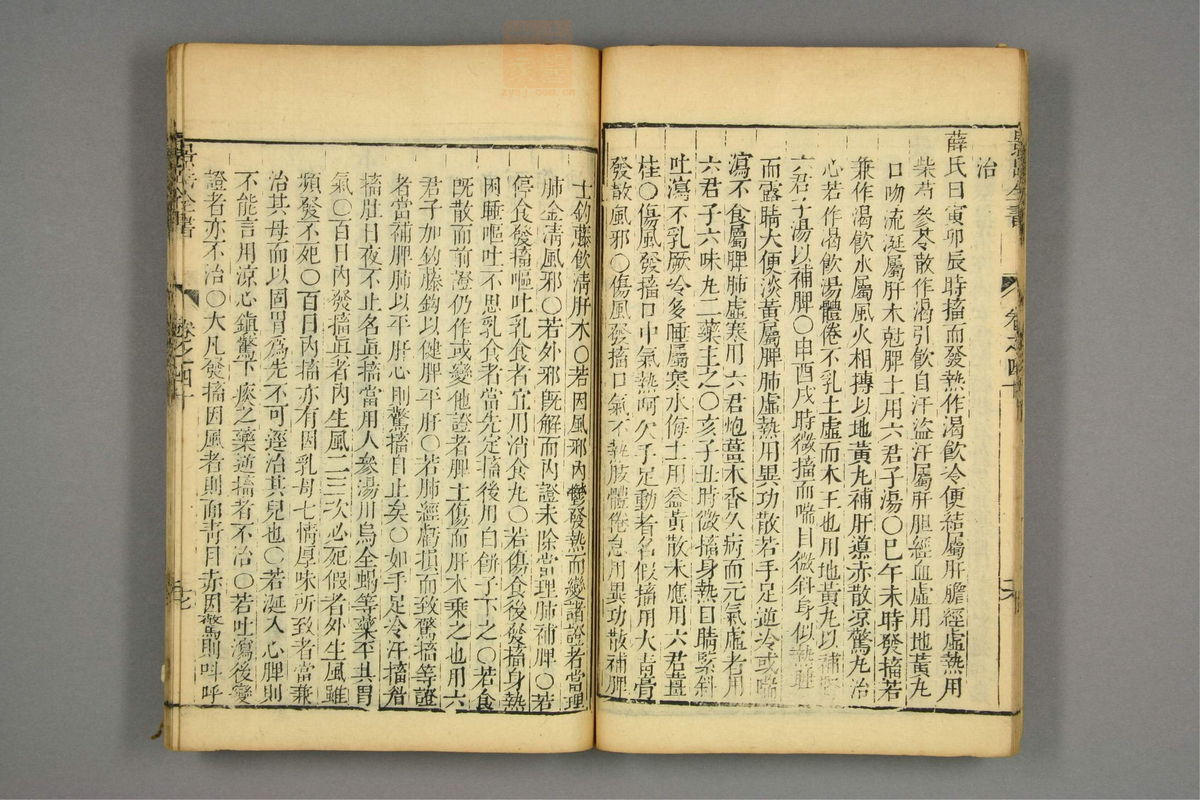 治
薛氏曰寅卯辰時搐而發熱作渴飲冷便結屬肝膽經虛熱用
柴芍參苓散作渴引飲自汗盜汗屬肝胆經血虛用地黃丸
口吻流涎屬肝木尅脾土用六君子湯○巳午未時發搐若
兼作渴飲水屬風火相搏以地黃丸補肝導赤散凉驚丸治
心若作渴飲湯體倦不乳土虛而木王也用地黃丸以補腎
六君子湯以補脾○申酉戌時微搐而喘目微斜身似熱睡
而露睛大便淡黃屬脾肺虛熱用異功散若手足逆冷或喘
瀉不食屬脾肺虛寒用六君炮薑木香久病而元氣虛者用
六君子六味丸二藥主之○亥子丑時微搐身熱目睛緊斜
吐瀉不乳厥冷多睡屬寒水侮土用益黃散未應用六君薑
桂○傷風發搐口中氣熱呵欠手足動者名假搐用大青膏
發散風邪○傷風發搐口氣不熱肢體倦怠用異功散補脾
土鈎藤飲清肝木○若因風邪內鬱發熱而變諸證者當理
肺金清風邪○若外邪旣解而內證未除當理肺補脾○若
停食發搐嘔吐乳食者宜用消食丸○若傷食後發搐身熱
困睡嘔吐不思乳食者當先定搐後用白餅子下之○若食
旣散而前證仍作或變他證者脾土傷而肝木乘之也用六
君子加鈎藤鈎以健脾平肝○若肺經虧損而致驚搐等證
者當補脾肺以平肝心則驚搐自止矣○如手足冷汗搐眉
搐肚日夜不止名眞搐當用人參湯川烏全蝎等藥平其胃
氣○百日內發搐眞者內生風二三次必死假者外生風雖
頻發不死○百日內搐亦有因乳母七情厚味所致者當兼
治其母而以固胃爲先不可逕治其兒也○若涎入心脾則
不能言用涼心鎮驚下痰之藥逆搐者不治○若吐瀉後變
證者亦不治○大凡發搐因風者則面青目赤因驚則呌呼
景岳全書
卷之四十
景岳全書
卷之四十